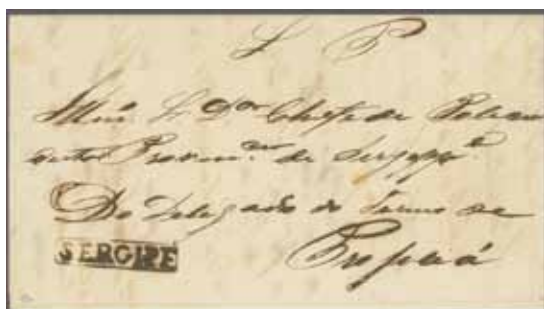 S P
Illmo Sr Dor Chefe de Policia
desta Provincia de Sergipe
Do Delegado do Termo de
Propriá
SERGIPE